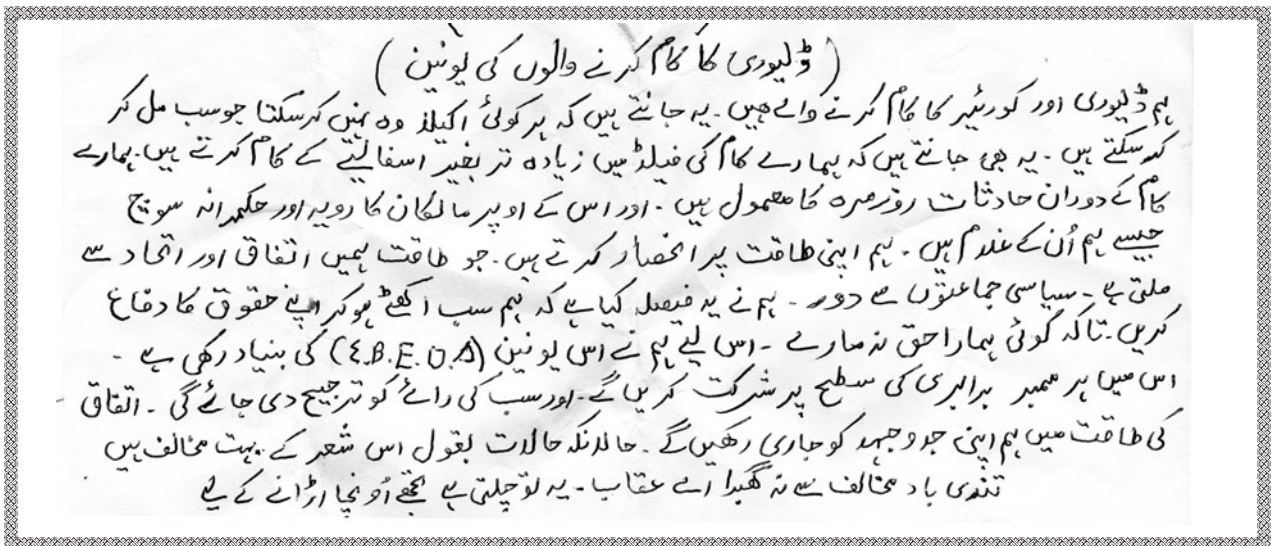 (ڈلیوری کا کام کرنے والوں کی یونین)
ہم ڈلیوری اور کورئیر کا کام کرنے والے ہیں۔ یہ جانتے ہیں کہ ہر کوئی اکیلا وہ نہیں کرسکتا جو سب مل کر
کرسکتے ہیں۔ یہ بھی جانتے ہیں کہ ہمارے کام کی فیلڈ میں زیادہ تر بغیر اسفالیے کے کام کرتے ہیں۔ ہمارے
کام کے دوران حادثات روزمرہ کا معمول ہیں۔ اور اس کے اوپر مالکان کا رویہ اور حکمرانہ سوچ
جیسے ہم اُن کے غلام ہیں۔ ہم اپنی طاقت پر انحصار کرتے ہیں۔ جو طاقت ہمیں اتفاق اور اتحاد سے
ملتی ہے۔ سیاسی جماعتوں سے دور۔ ہم نے یہ فیصلہ کیا ہے کہ ہم سب اکھٹے ہوکر اپنے حقوق کا دفاع
کریں۔ تاکہ کوئی ہمارا حق نہ مارے۔ اس لیے ہم نے اس یونین (Σ.B.E.O.A) کی بنیاد رکھی ہے۔
اس میں ہر ممبر برابری کی سطح پر شرکت کریں گے۔ اور سب کی رائے کو ترجیح دی جائے گی۔ اتفاق
کی طاقت میں ہم اپنی جدوجہد کو جاری رکھیں گے۔ حالانکہ حالات بقول اس شعر کے بہت مخالف ہیں
تندی باد مخالف سے نہ گھبرا اے عقاب۔ یہ تو چلتی ہے تجھے اُونچا اڑانے کے لیے